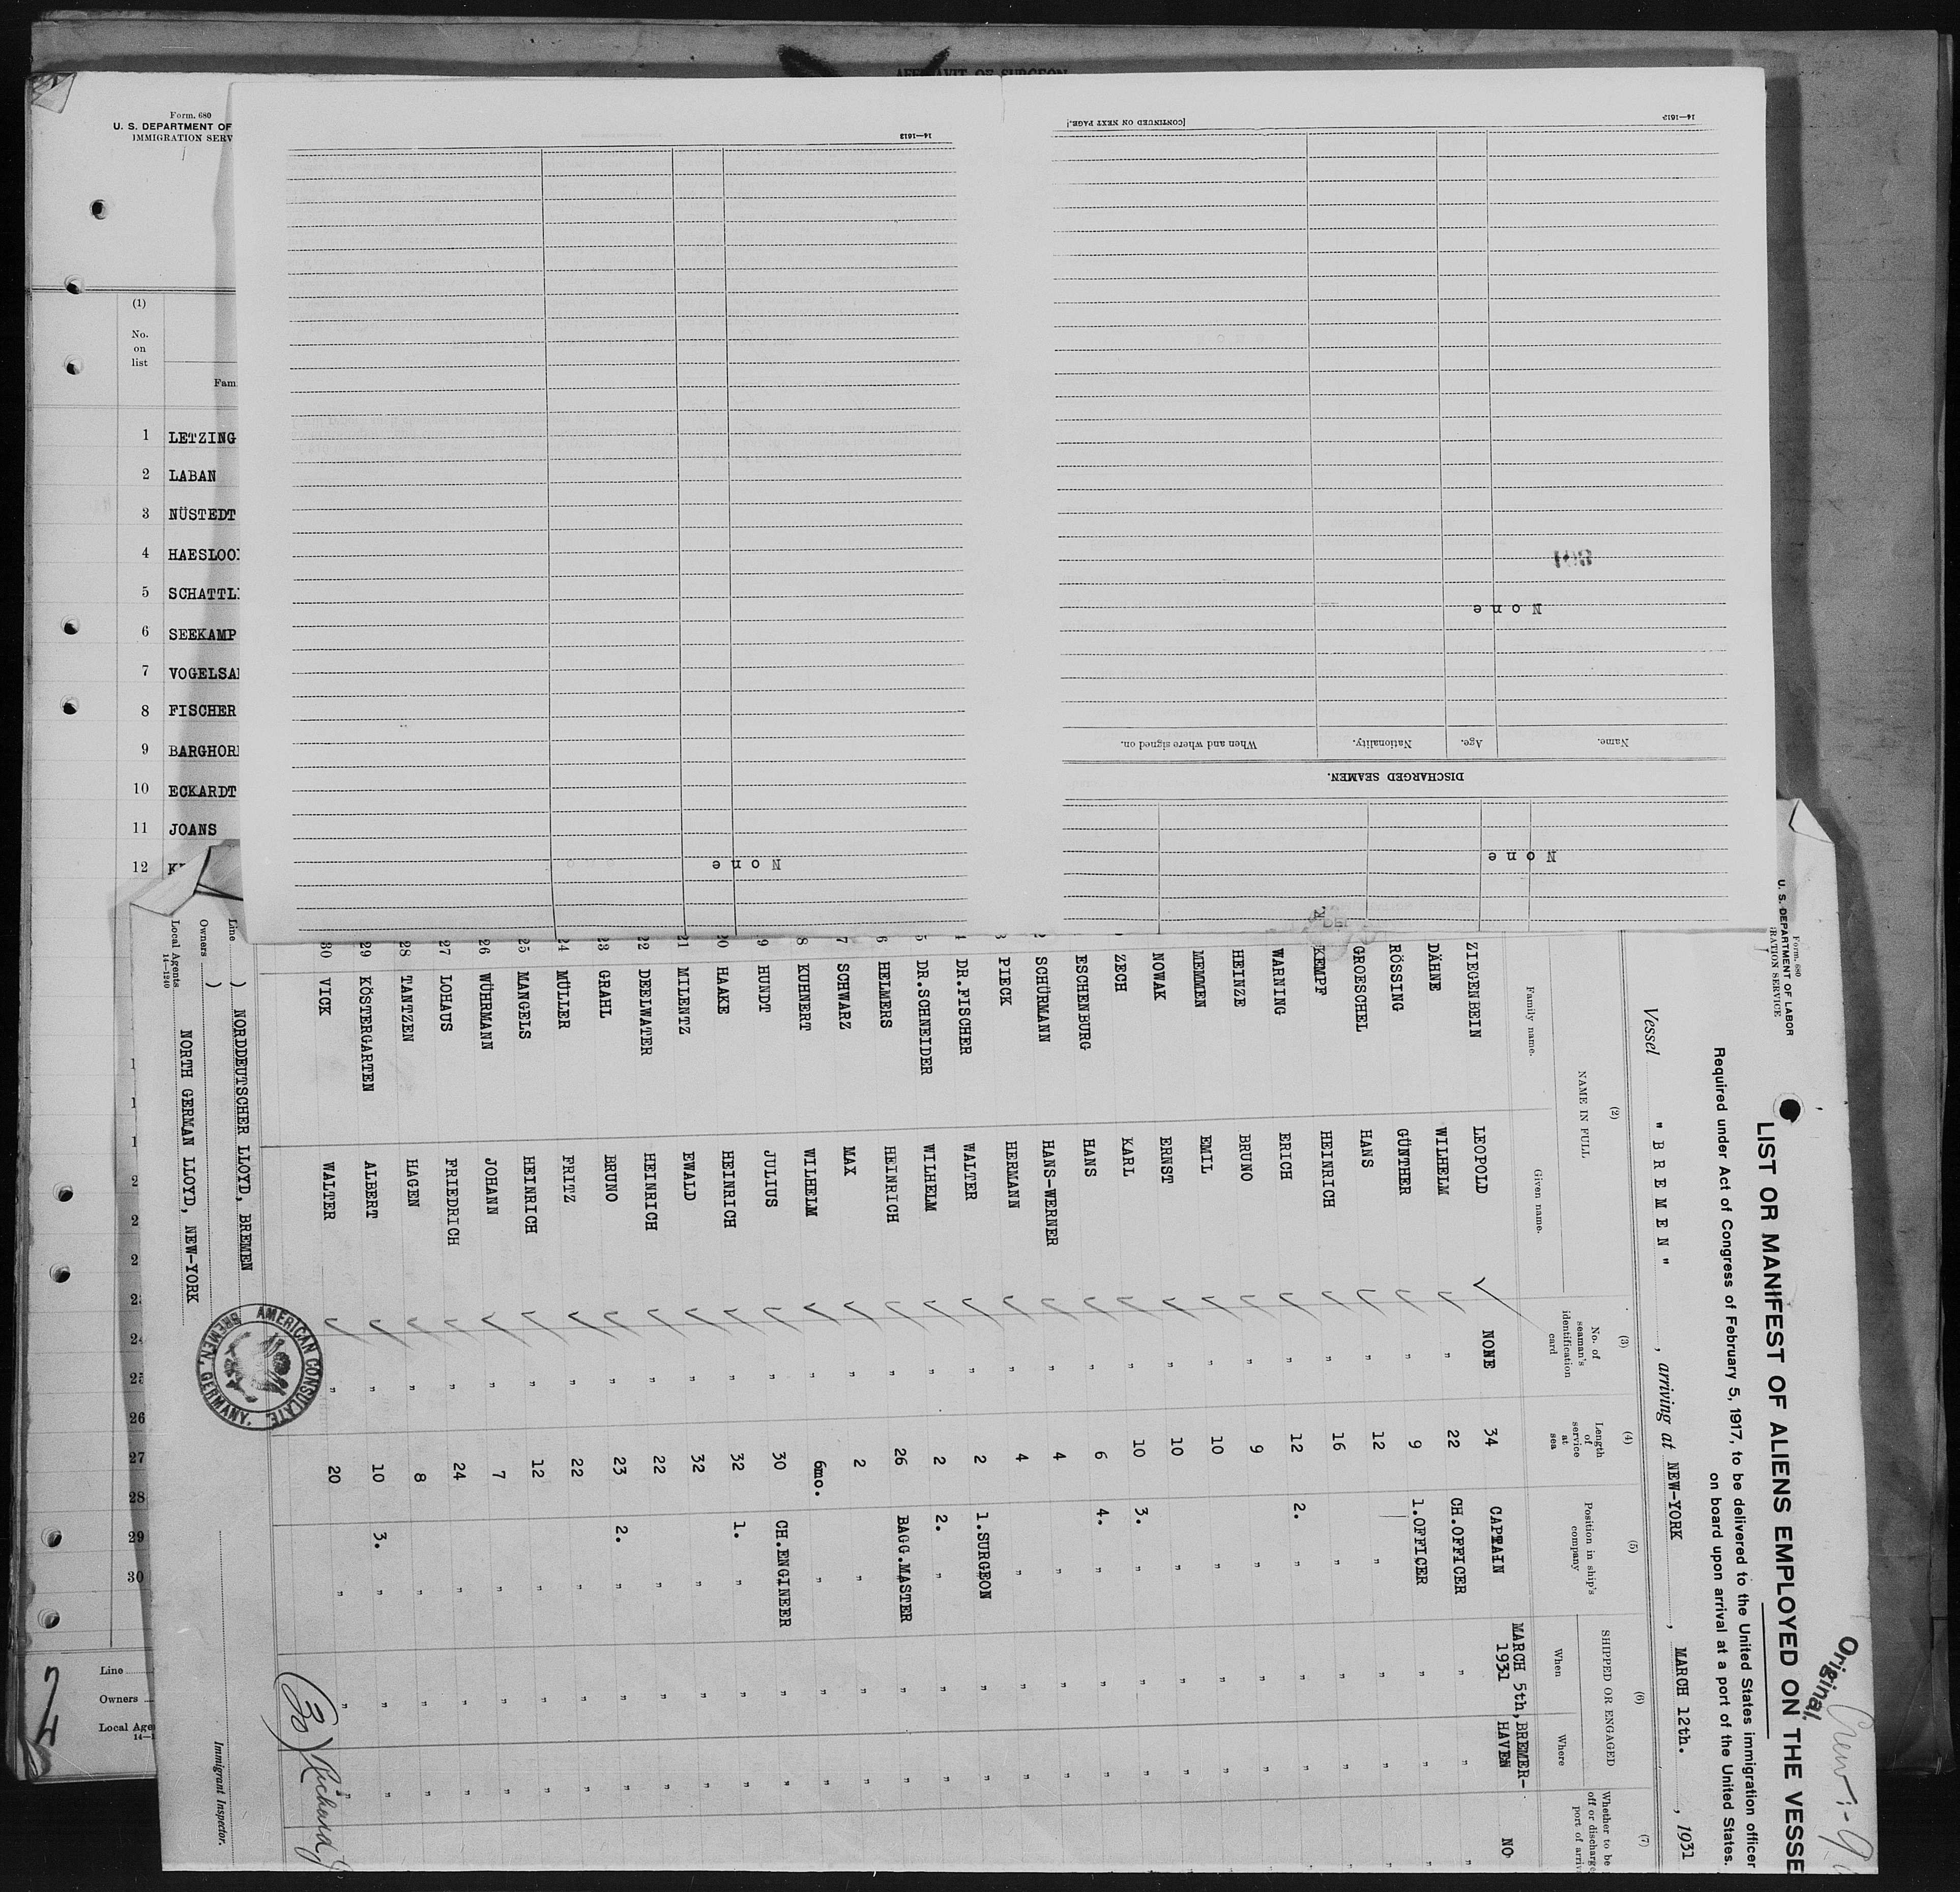 AFFIDAVIT OF SURGEON
Form. 680
U. S. DEPARTMENT OF
IMMIGRATION SERV
(1)
No.
on
list
Fam
1 LETZING
2 LABAN
3 NÜSTEDT
4 HAESLOO
5 SCHATTL
6 SEEKAMP
7 VOGELSA
8 FISCHER
9 BARGHOR
10 ECKARDT
11 JOANS
12
26
27
28
29
30
Line
Owners
Local Age
14—1
14—1613
None
14—1612
[CONTINUED ON NEXT PAGE.]
None
DISCHARGED SEAMEN.
Name.
Age.
Nationality.
When and where signed on.
None
Original
Form. 680
U. S. DEPARTMENT OF LABOR
IMMIGRATION SERVICE
LIST OR MANIFEST OF ALIENS EMPLOYED ON THE VESSE
Required under Act of Congress of February 5, 1917, to be delivered to the United States immigration officer
on board upon arrival at a port of the United States.
Vessel "BREMEN", arriving at NEW-YORK, MARCH 12th., 1931
(2)
NAME IN FULL
Family name.
Given name.
(3)
No. of
seaman's
identification
card
(4)
Length
of
service
at
sea
(5)
Position in ship's
company
(6)
SHIPPED OR ENGAGED
When
Where
(7)
Whether to be
off or discharge
port of arriv
ZIEGENBEIN LEOPOLD NONE 34 CAPTAIN MARCH 5th, 1931 BREMER-HAVEN NO
DÄHNE WILHELM " 22 CH.OFFICER " " "
RÖSSING GÜNTHER " 9 1.OFFICER " " "
GROESCHEL HANS " 12 " " " "
KEMPF HEINRICH " 16 " " "
WARNING ERICH " 12 2. " " " "
HEINZE BRUNO " 9 " " "
MEMMEN EMIL " 10 " " "
NOWAK ERNST " 10 " " "
ZECH KARL " 10 3. " " "
ESCHENBURG HANS " 6 4. " " "
2 SCHÜRMANN HANS-WERNER " 4 " " "
3 PIECK HERMANN " 4 " " "
4 DR.FISCHER WALTER " 2 1.SURGEON " "
5 DR.SCHNEIDER WILHELM " 2 2. " " "
6 HELMERS HEINRICH " 26 BAGG.MASTER " "
7 SCHWARZ MAX " 2 " " "
8 KUHNERT WILHELM " 6mo. " " "
9 HUNDT JULIUS " 30 CH.ENGINEER " "
20 HAAKE HEINRICH " 32 1. " " "
21 MILENTZ EWALD " 32 " " "
22 DEELWATER HEINRICH " 22 " " "
23 GRAHL BRUNO " 23 2. " " "
24 MÜLLER FRITZ " 22 " " "
25 MANGELS HEINRICH " 12 " " "
26 WÜHRMANN JOHANN " 7 " " "
27 LOHAUS FRIEDRICH " 24 " " "
28 TANTZEN HAGEN " 8 " " "
29 KÖSTERGARTEN ALBERT " 10 3. " " "
30 VICK WALTER " 20 " " "
Line ) NORDDEUTSCHER LLOYD, BREMEN
Owners )
Local Agents NORTH GERMAN LLOYD, NEW-YORK
14—1240
AMERICAN CONSULATE.
BREMEN, GERMANY.
(30) Richard
Immigrant Inspector.